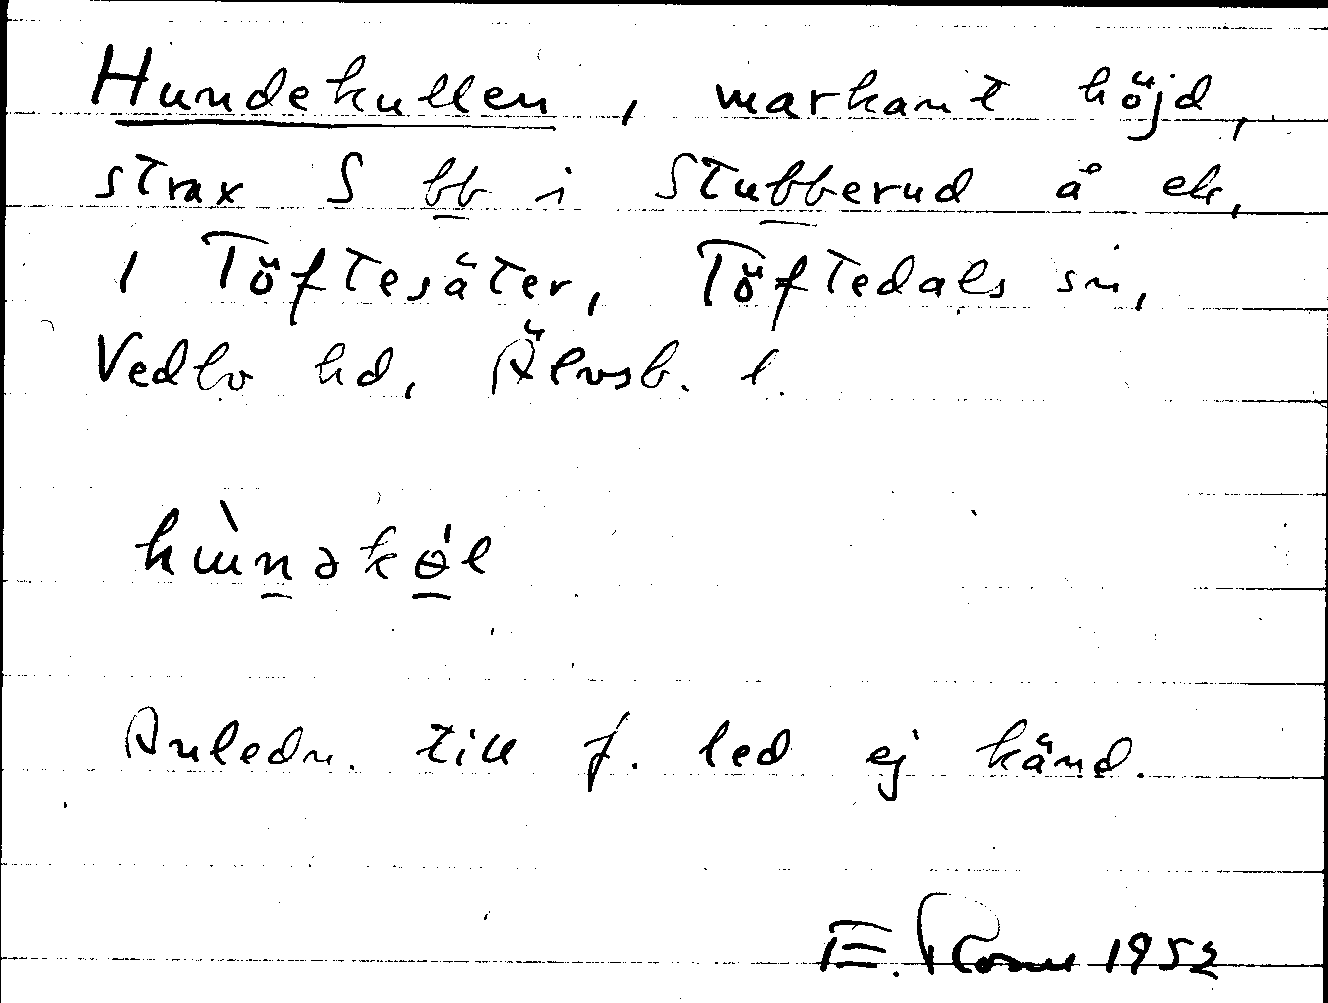 Hundekullen, markant höjd,
strax S bb i Stubberud å ek,
1 Töftesäter, Töftedals sn,
Vedbo hd, Älvsb. l.
Anledn. till f. led ej känd.
E. 1952